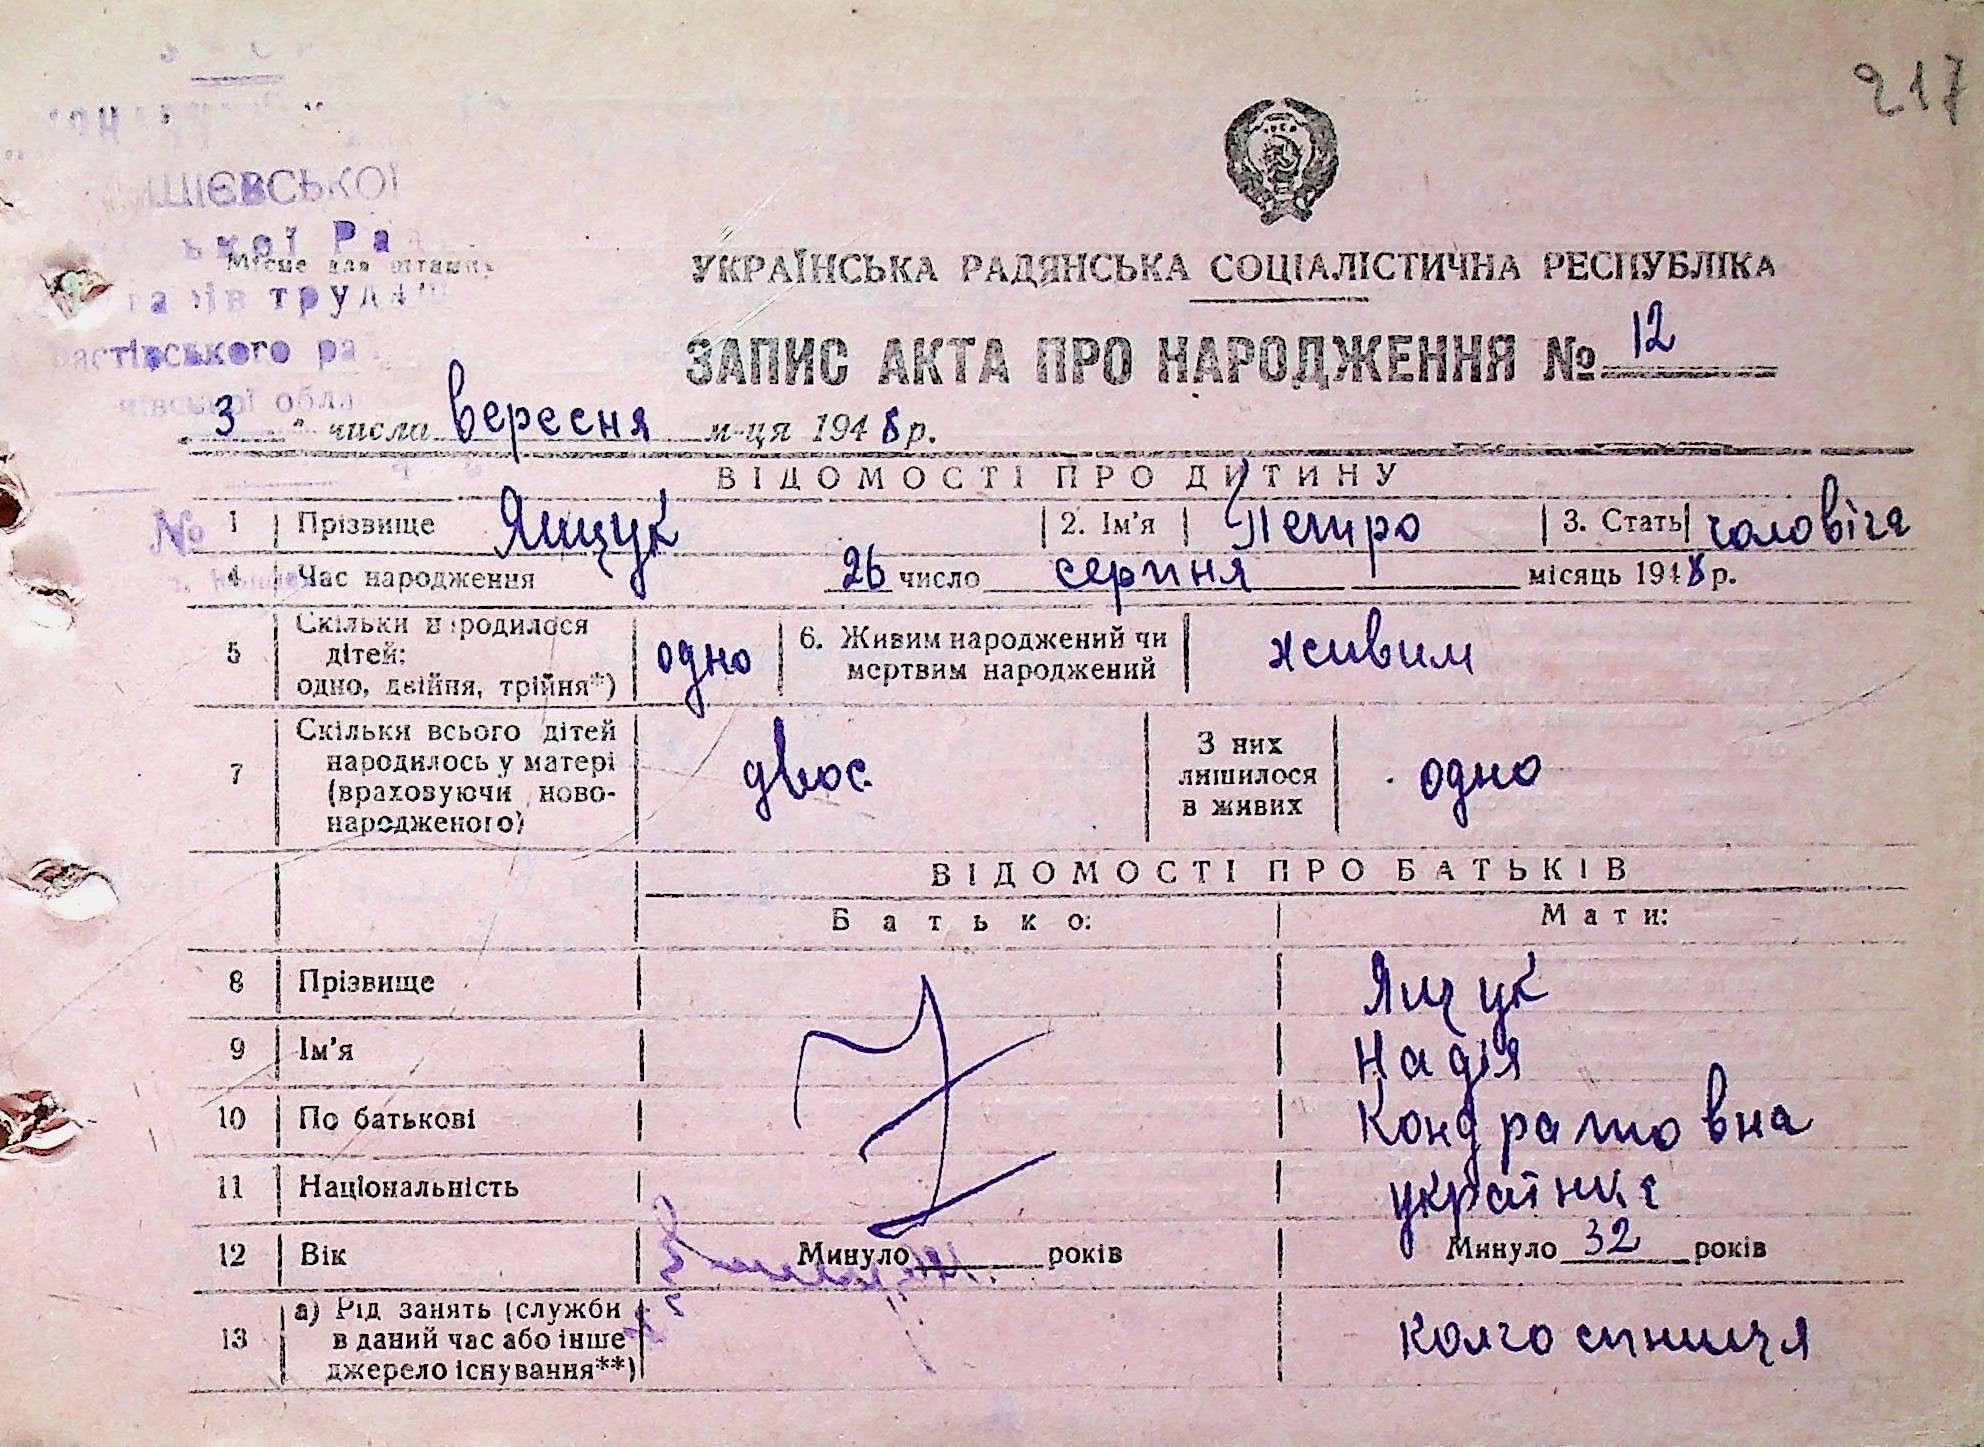 217
ШІЄВСЬКОЇ
Місце для штампу
УКРАЇНСЬКА РАДЯНСЬКА СОЦІАЛІСТИЧНА РЕСПУБЛІКА
ЗАПИС АКТА ПРО НАРОДЖЕННЯ № 12
„ 3 " числа вересня м-ця 1948 р.
ВІДОМОСТІ ПРО ДИТИНУ
№
1 Прізвище Ящук 2. Ім'я Петро 3. Стать чоловіча
4 Час народження 26 число серпня місяць 1948 р.
5 Скільки народилося дітей: одно, двійня, трійня*) одно 6. Живим народжений чи мертвим народжений живим
7 Скільки всього дітей народилось у матері (враховуючи ново-народженого) двоє З них лишилося в живих одно
ВІДОМОСТІ ПРО БАТЬКІВ
Батько: Мати:
8 Прізвище Ящук
9 Ім'я Надія
10 По батькові Кондратовна
11 Національність українка
12 Вік Минуло років Минуло 32 років
13 а) Рід занять (служби в даний час або інше джерело існування**) колгоспниця